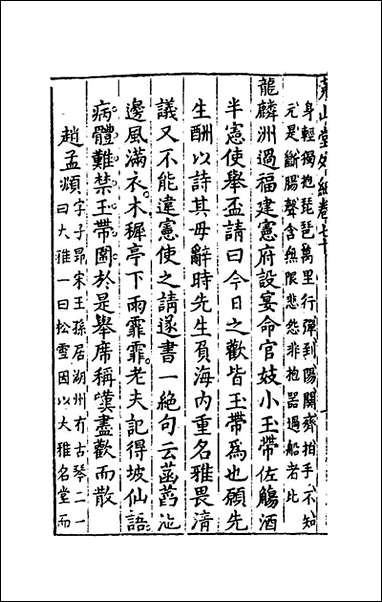 堯山堂外紀卷七十
身輕獨抱琵琶萬里行彈到陽關齊拍手不知
元是斷腸聲含無限悲怨非抱器過船者比
龍麟洲過福建憲府設宴命官妓小玉帶佐觴酒
半憲使舉盃請曰今日之歡皆玉帶爲也願先
生酬以詩其母辭時先生負海内重名雅畏清
議又不能違憲使之請遂書一絕句云菡萏池
邊風滿衣木樨亭下雨霏霏老夫記得坡仙語
病體難禁玉帶圍於是舉席稱嘆盡歡而散
趙孟頫字子昂宋王孫居湖州有古琴二一
曰大雅一曰松雪因以大雅名堂而